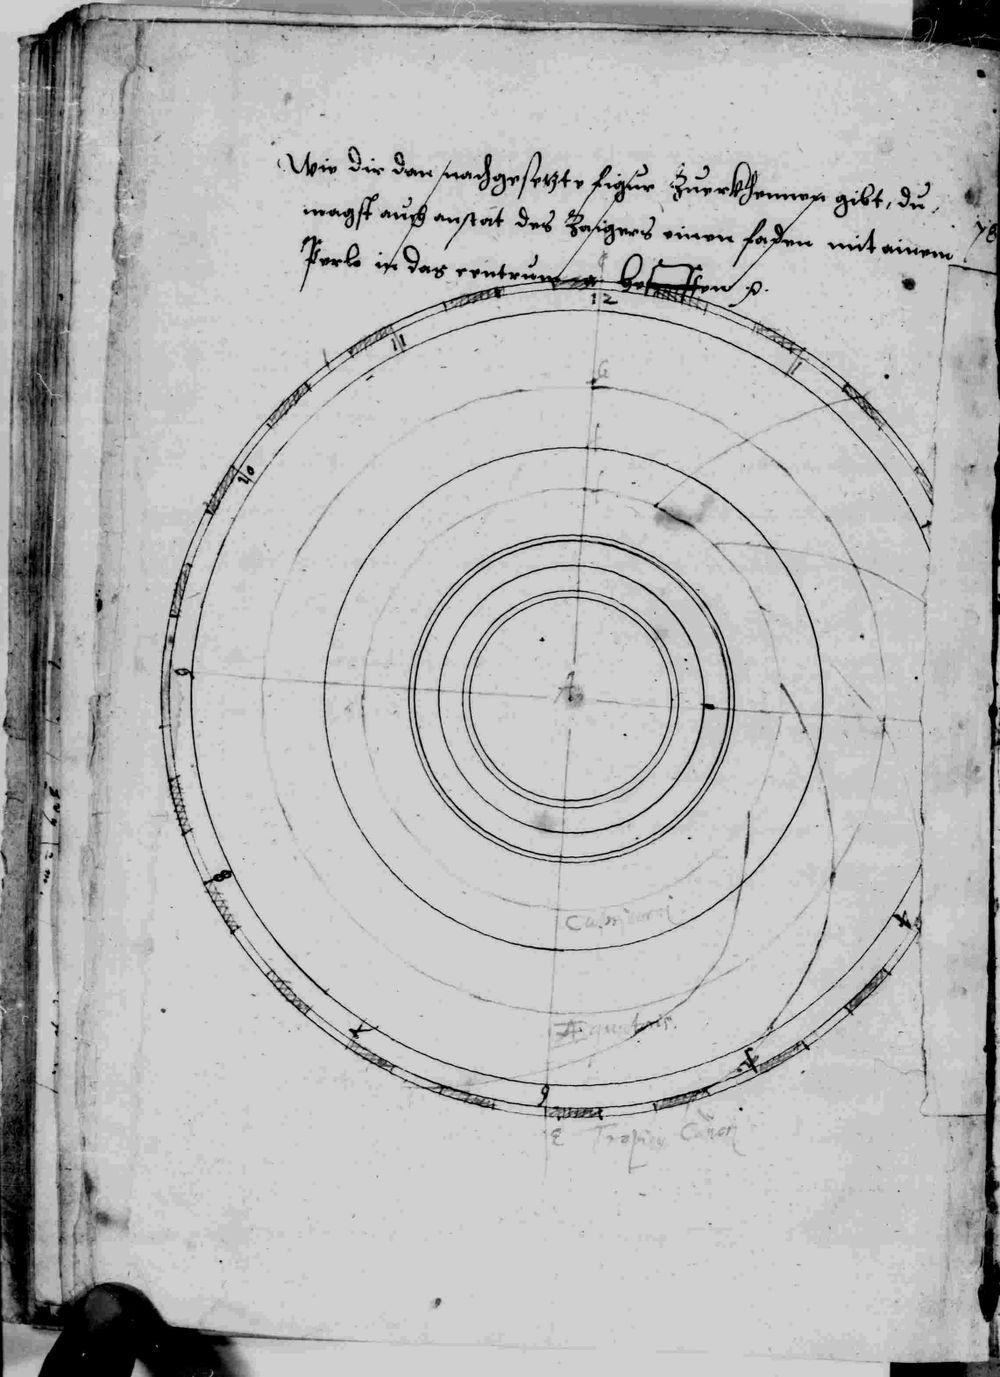 Wie dir dan nachgesetzte figur Zuerkhennen gibt, du
magst auch anstat des Zaigers einen faden mit ainem
Perle in das centrum A
78
12
11
11
10
9
8
7
6
A
Capricorni
Æquatoris.
E Tropicus Cancri